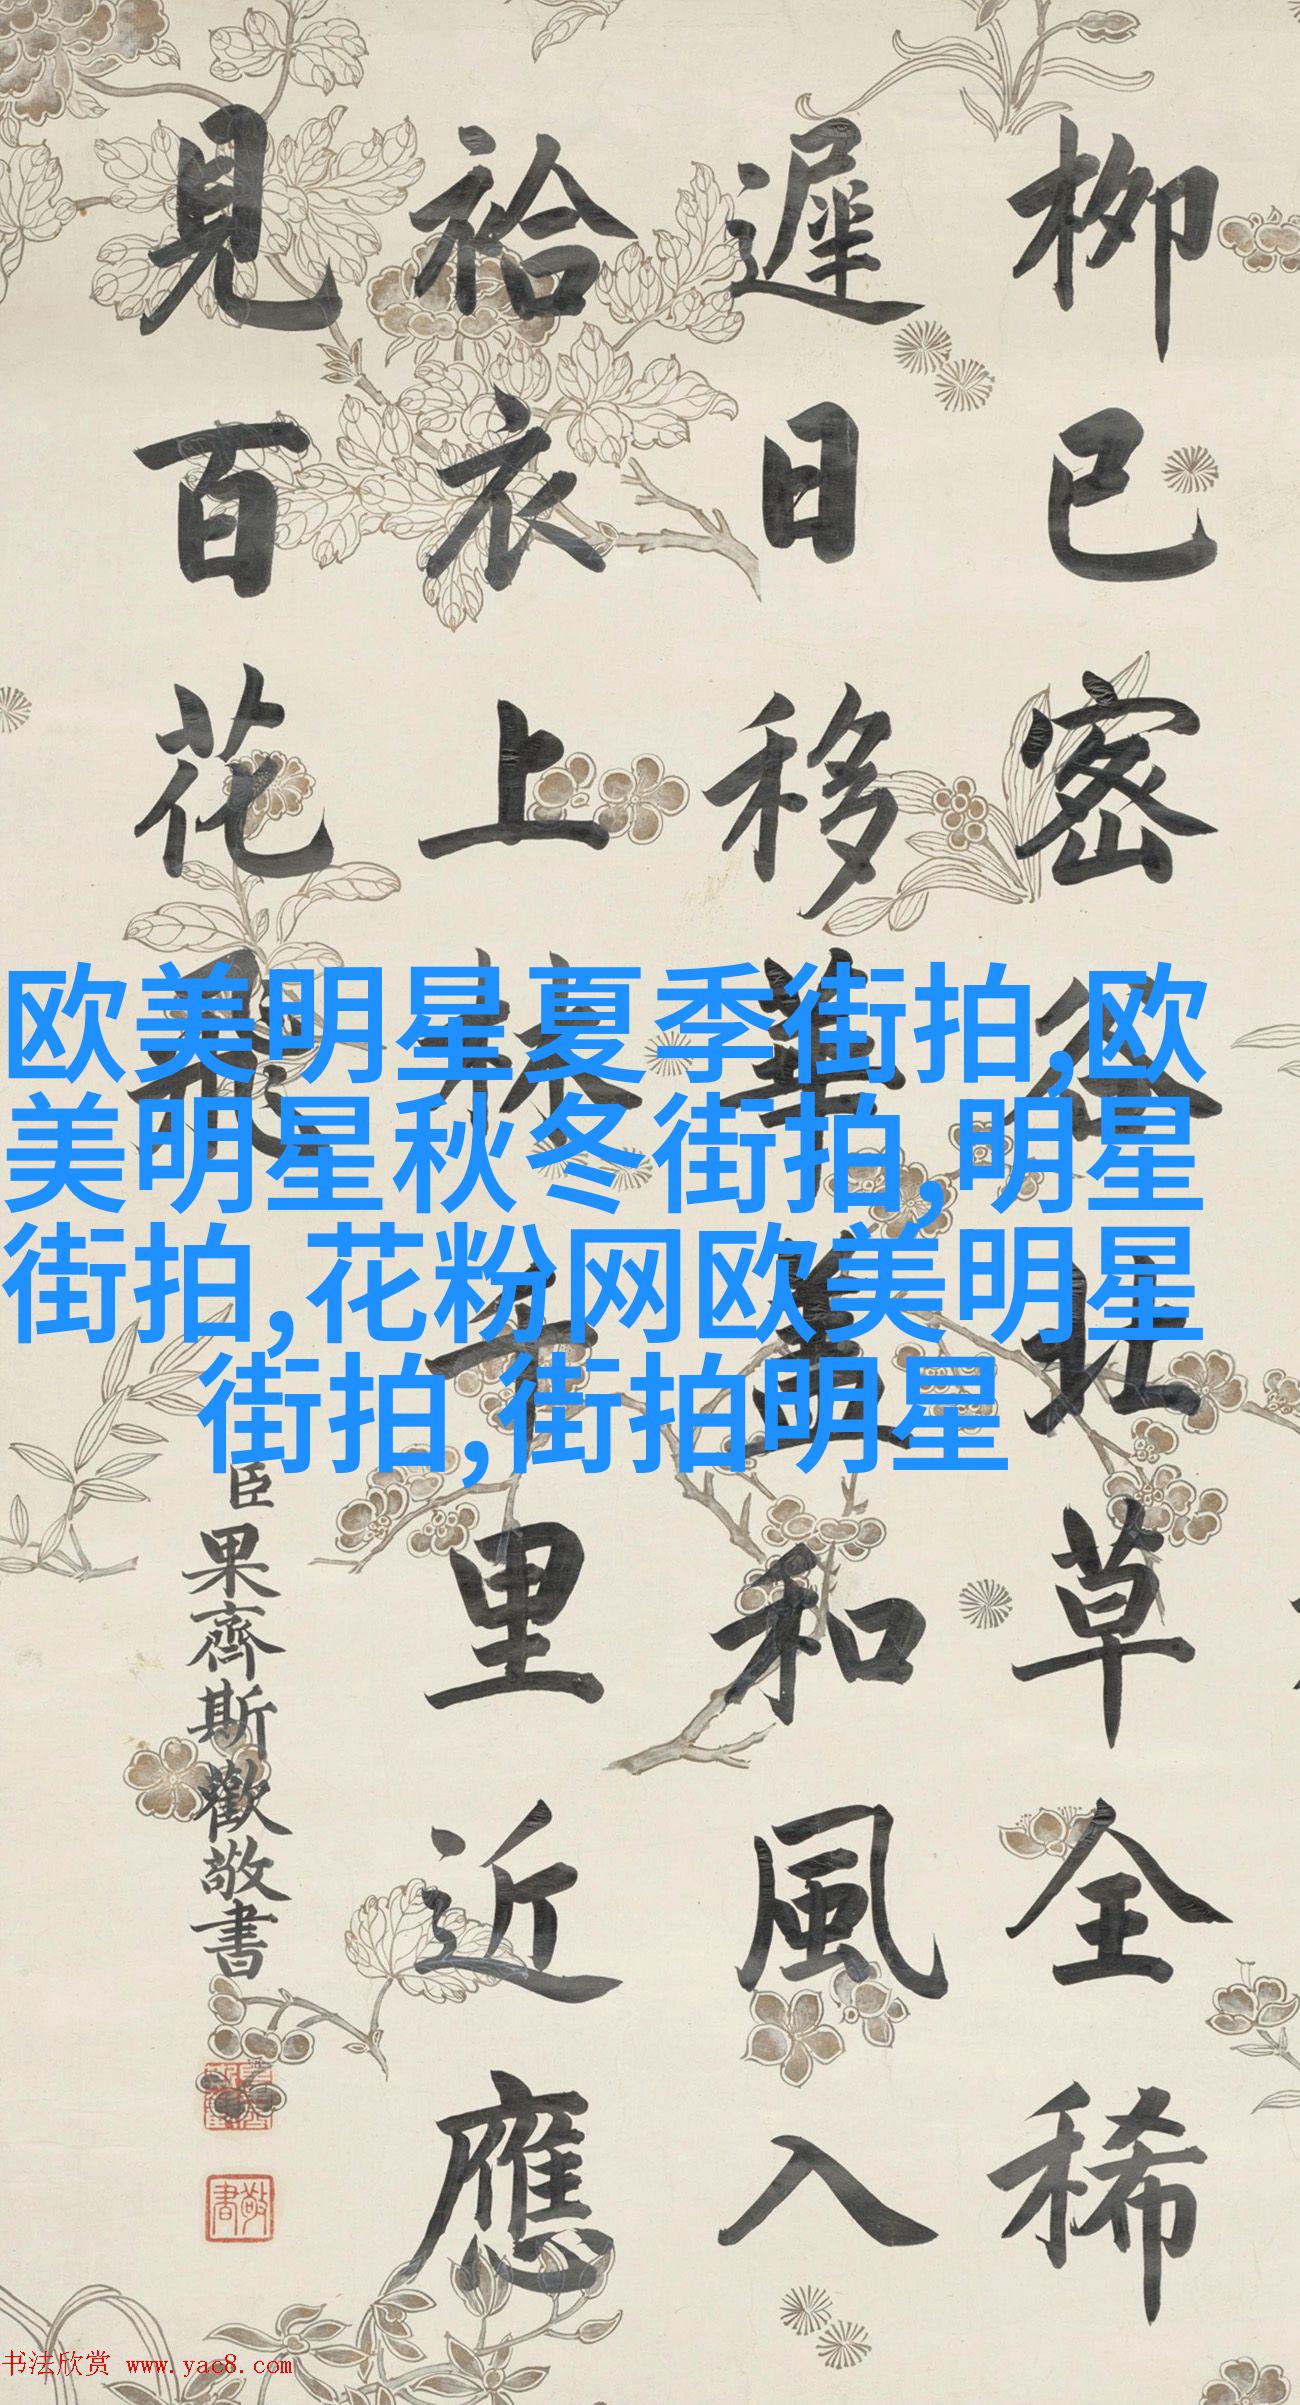 栁已密北草全稀
遲日移華蓋和風入
袷衣上林千里近應
見百花飛
臣果齊斯歡敬書
敬書
欧美明星夏季街拍,欧
美明星秋冬街拍,明星
街拍,花粉网欧美明星
街拍,街拍明星
书法欣赏 www.yac8.com